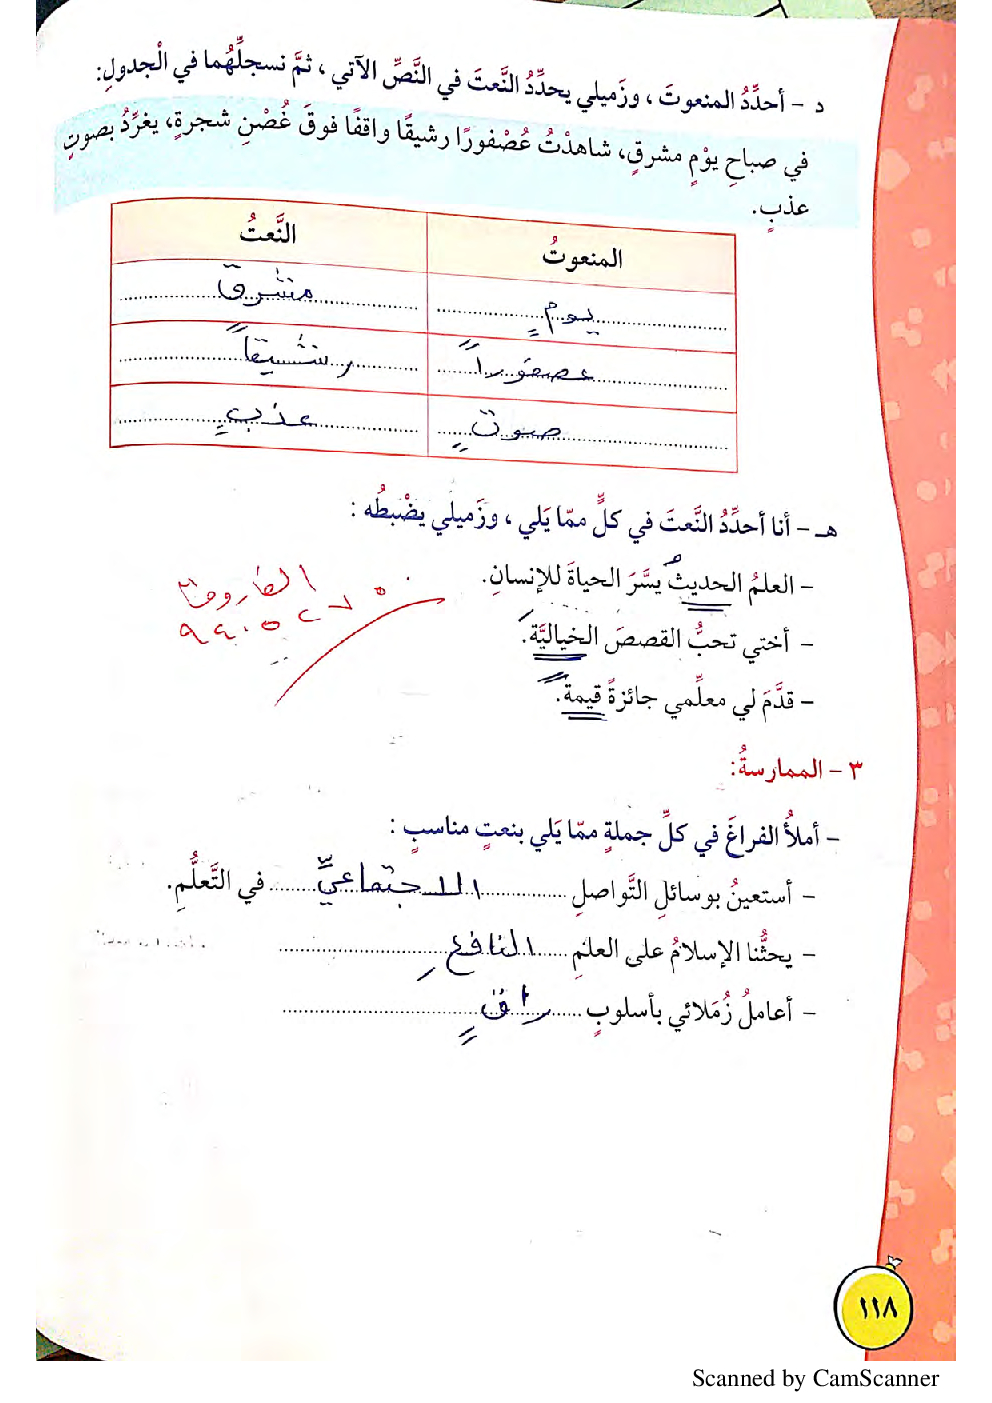 د - أحدِّدُ المنعوتَ ، وزَميلي يحدِّدُ النَّعتَ في النَّصِّ الآتي ، ثمَّ نسجلُّهُما في الْجدولِ:
في صباحِ يوْمٍ مشرقٍ، شاهدْتُ عُصْفورًا رشيقًا واقفًا فوقَ غُصْنِ شجرةٍ، يغرِّدُ بصوتٍ
عذبٍ.
المنعوتُ النَّعتُ
يومٍ مشرقٍ
عصفوراً رشيقاً
صوتٍ عذبٍ
هـ - أنا أحدِّدُ النَّعتَ في كلٍّ ممّا يَلي ، وزَميلي يضْبطُه :
- العلمُ الحديثُ يسَّرَ الحياةَ للإنسانِ.
الفاروق
- أختي تحبُّ القصصَ الخياليَّةَ.
٩٩٠٥٢٧٠٠
- قدَّمَ لي معلِّمي جائزةً قيمةً.
٣ - الممارسةُ:
- أملأُ الفراغَ في كلِّ جملةٍ ممّا يَلي بنعتٍ مناسبٍ :
- أستعينُ بوسائلِ التَّواصلِ الاجتماعيِّ في التَّعلُّمِ.
- يحثُّنا الإسلامُ على العلمِ النافعِ
- أعاملُ زُمَلائي بأسلوبٍ راقٍ
١١٨
Scanned by CamScanner